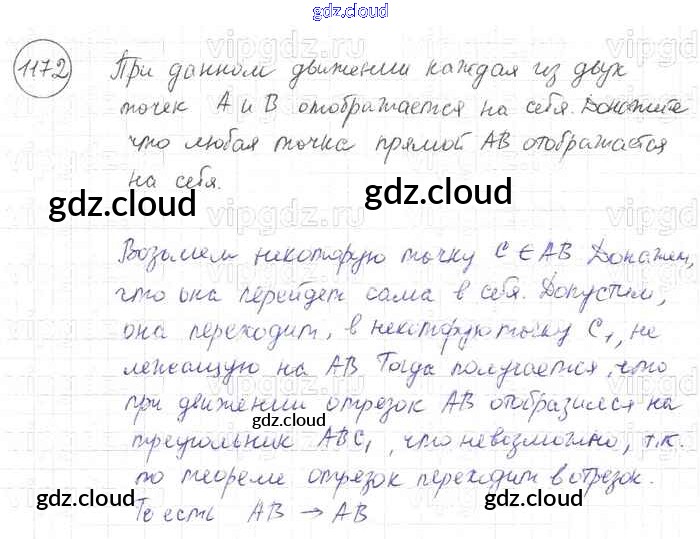 gdz.cloud
1172 При данном движении каждая из двух
точек А и В отображается на себя. Докажите
что любая точка прямой АВ отображается
на себя.
gdz.cloud gdz.cloud
Возьмем некоторую точку C ∈ AB Докажем,
что она перейдет сама в себя. Допустим,
она переходит, в некоторую точку C₁, не
лежащую на АВ. Тогда получается, что
при движении отрезок АВ отобразился на
gdz.cloud
треугольник ABC₁, что невозможно, т.к.
по теореме отрезок переходит в отрезок.
gdz.cloud gdz.cloud
То есть AB → AB